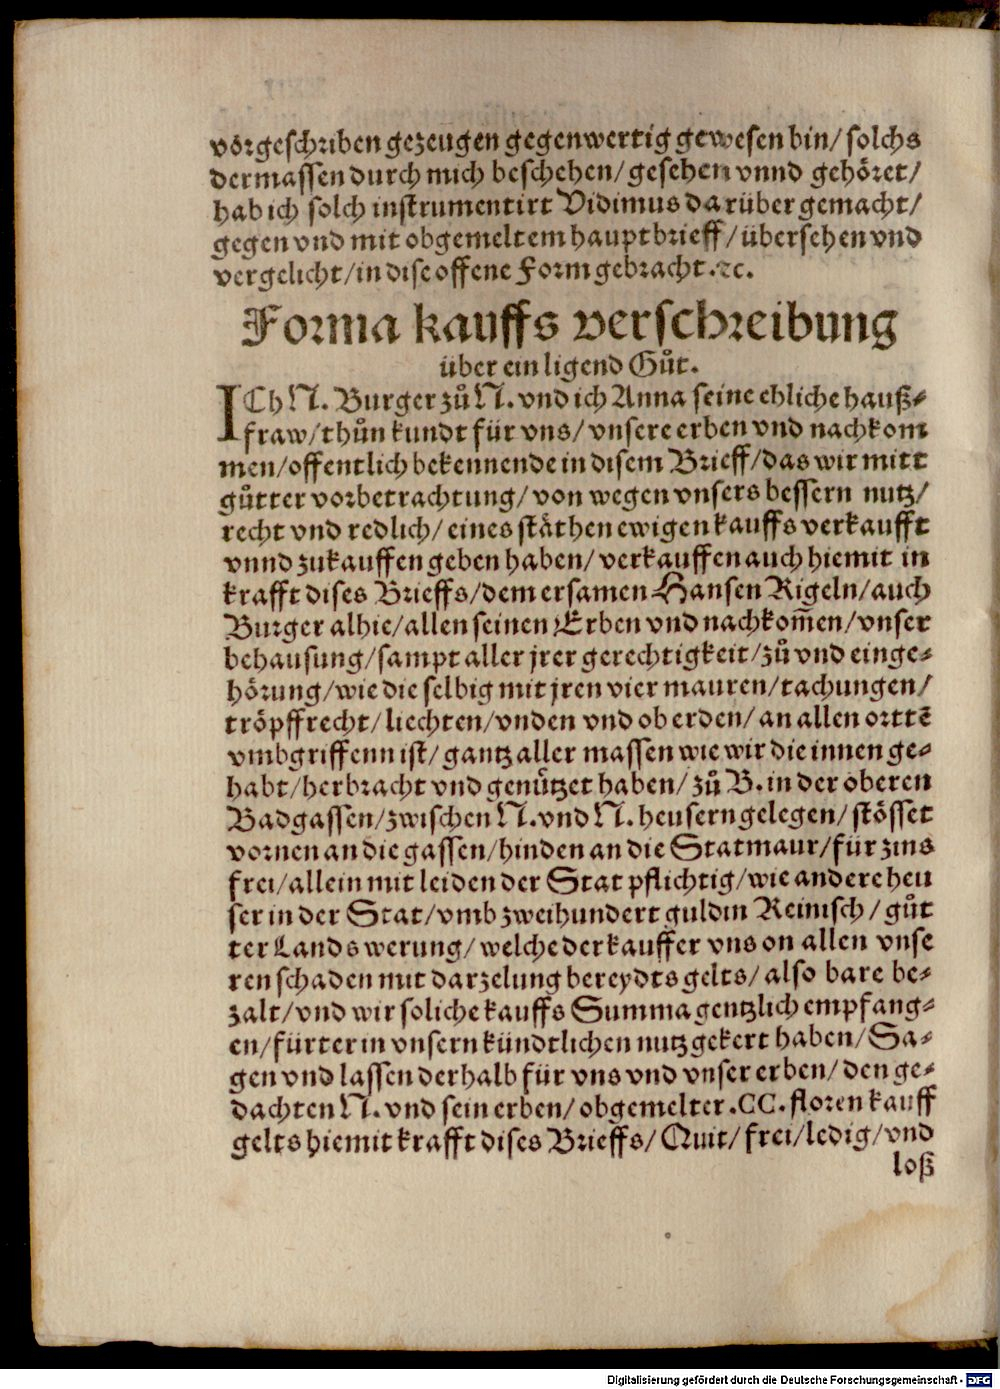 vörgeschriben gezeugen gegenwertig gewesen bin/ solchs
dermassen durch mich beschehen/ gesehen vnnd gehöret/
hab ich solch instrumentirt Vidimus darüber gemacht/
gegen vnd mit obgemeltem hauptbrieff/ übersehen vnd
vergelicht/ in dise offene Form gebracht. ꝛc.
Forma kauffs verschreibung
über ein ligend Gůt.
ICh N. Burger zů N. vnd ich Anna seine ehliche hauß⸗
fraw/ thůn kundt für vns/ vnsere erben vnd nachkom
men/ offentlich bekennende in disem Brieff/ das wir mitt
gůtter vorbetrachtung/ von wegen vnsers bessern nutz/
recht vnd redlich/ eines stäthen ewigen kauffs verkaufft
vnnd zukauffen geben haben/ verkauffen auch hiemit in
krafft dises Brieffs/ dem ersamen Hansen Rigeln/ auch
Burger alhie/ allen seinen Erben vnd nachkom̄en/ vnser
behausung/ sampt aller jrer gerechtigkeit/ zů vnd einge⸗
hörung/ wie die selbig mit jren vier mauren/ tachungen/
tröpffrecht/ liechten/ vnden vnd ob erden/ an allen orttē
vmbgriffenn ist/ gantz aller massen wie wir die innen ge⸗
habt/ herbracht vnd genützet haben/ zů B. in der oberen
Badgassen/ zwischen N. vnd N. heusern gelegen/ stösset
vornen an die gassen/ hinden an die Statmaur/ für zins
frei/ allein mit leiden der Stat pflichtig/ wie andere heu
ser in der Stat/ vmb zweihundert guldin Reinisch/ gůt
ter Lands werung/ welche der kauffer vns on allen vnse
ren schaden mit darzelung bereydts gelts/ also bare be⸗
zalt/ vnd wir soliche kauffs Summa gentzlich empfang⸗
en/ fürter in vnsern kündtlichen nutz gekert haben/ Sa⸗
gen vnd lassen derhalb für vns vnd vnser erben/ den ge⸗
dachten N. vnd sein erben/ obgemelter .CC. floren kauff
gelts hiemit krafft dises Brieffs/ Quit/ frei/ ledig/ vnd
loß
Digitalisierung gefördert durch die Deutsche Forschungsgemeinschaft - DFG